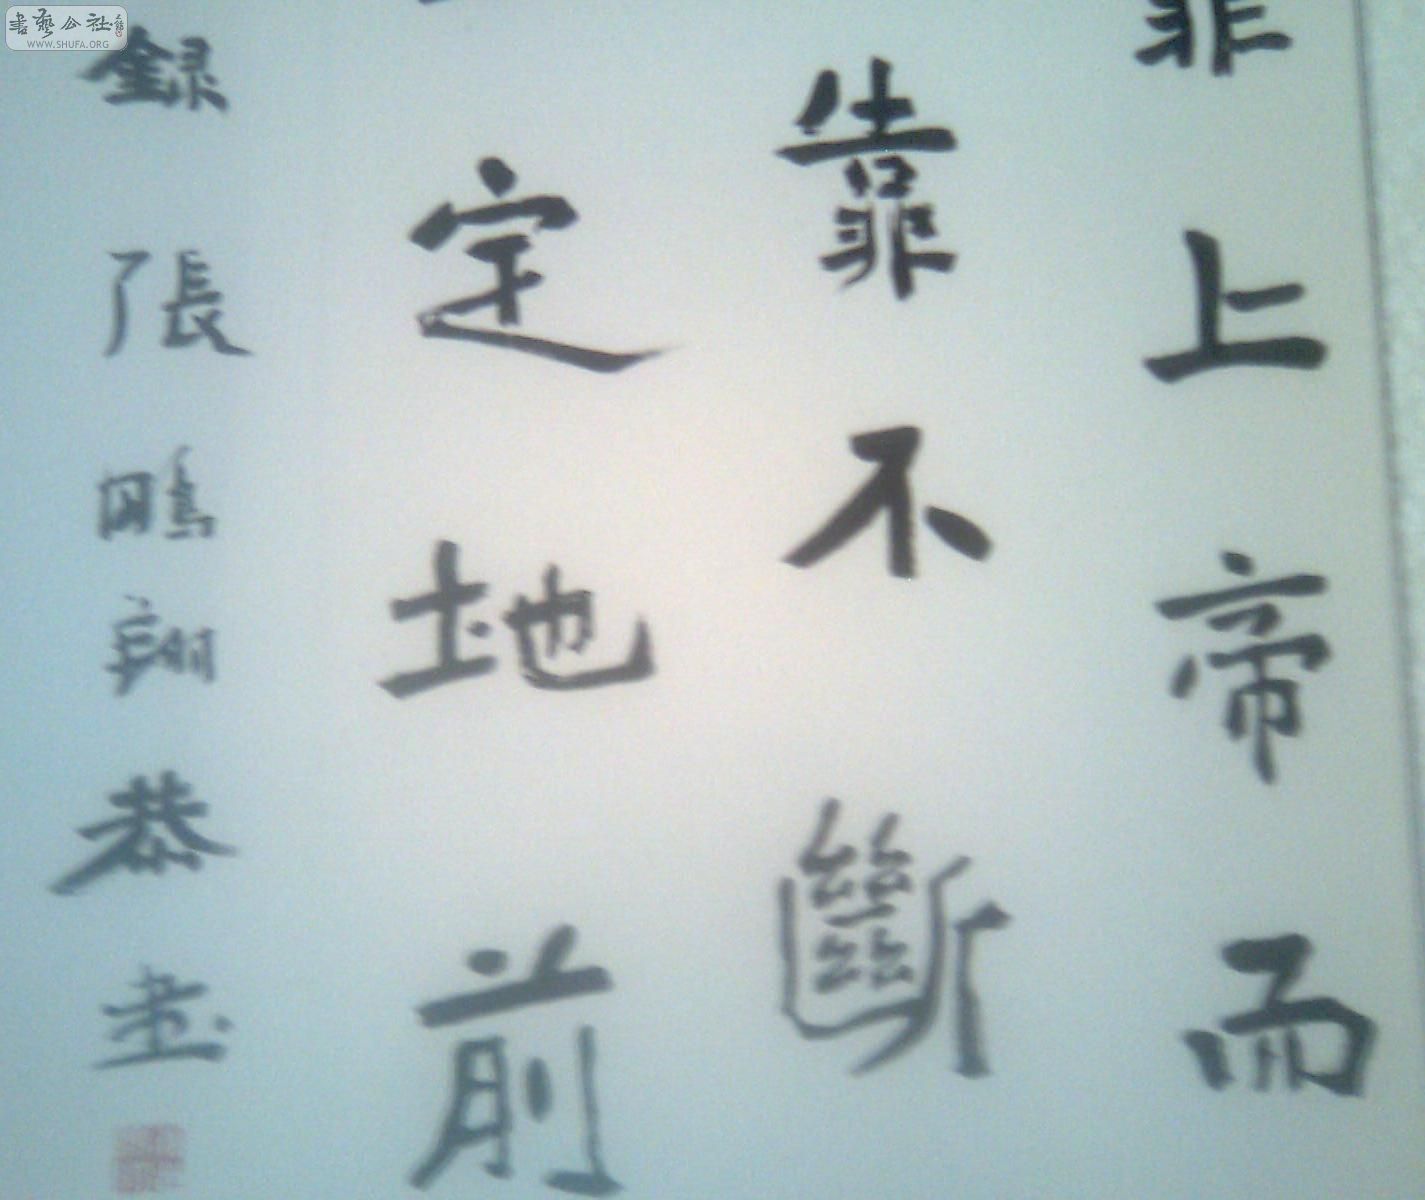 上帝而
靠不斷
定地前
錄張鵬翔恭書
書藝公社
WWW.SHUFA.ORG